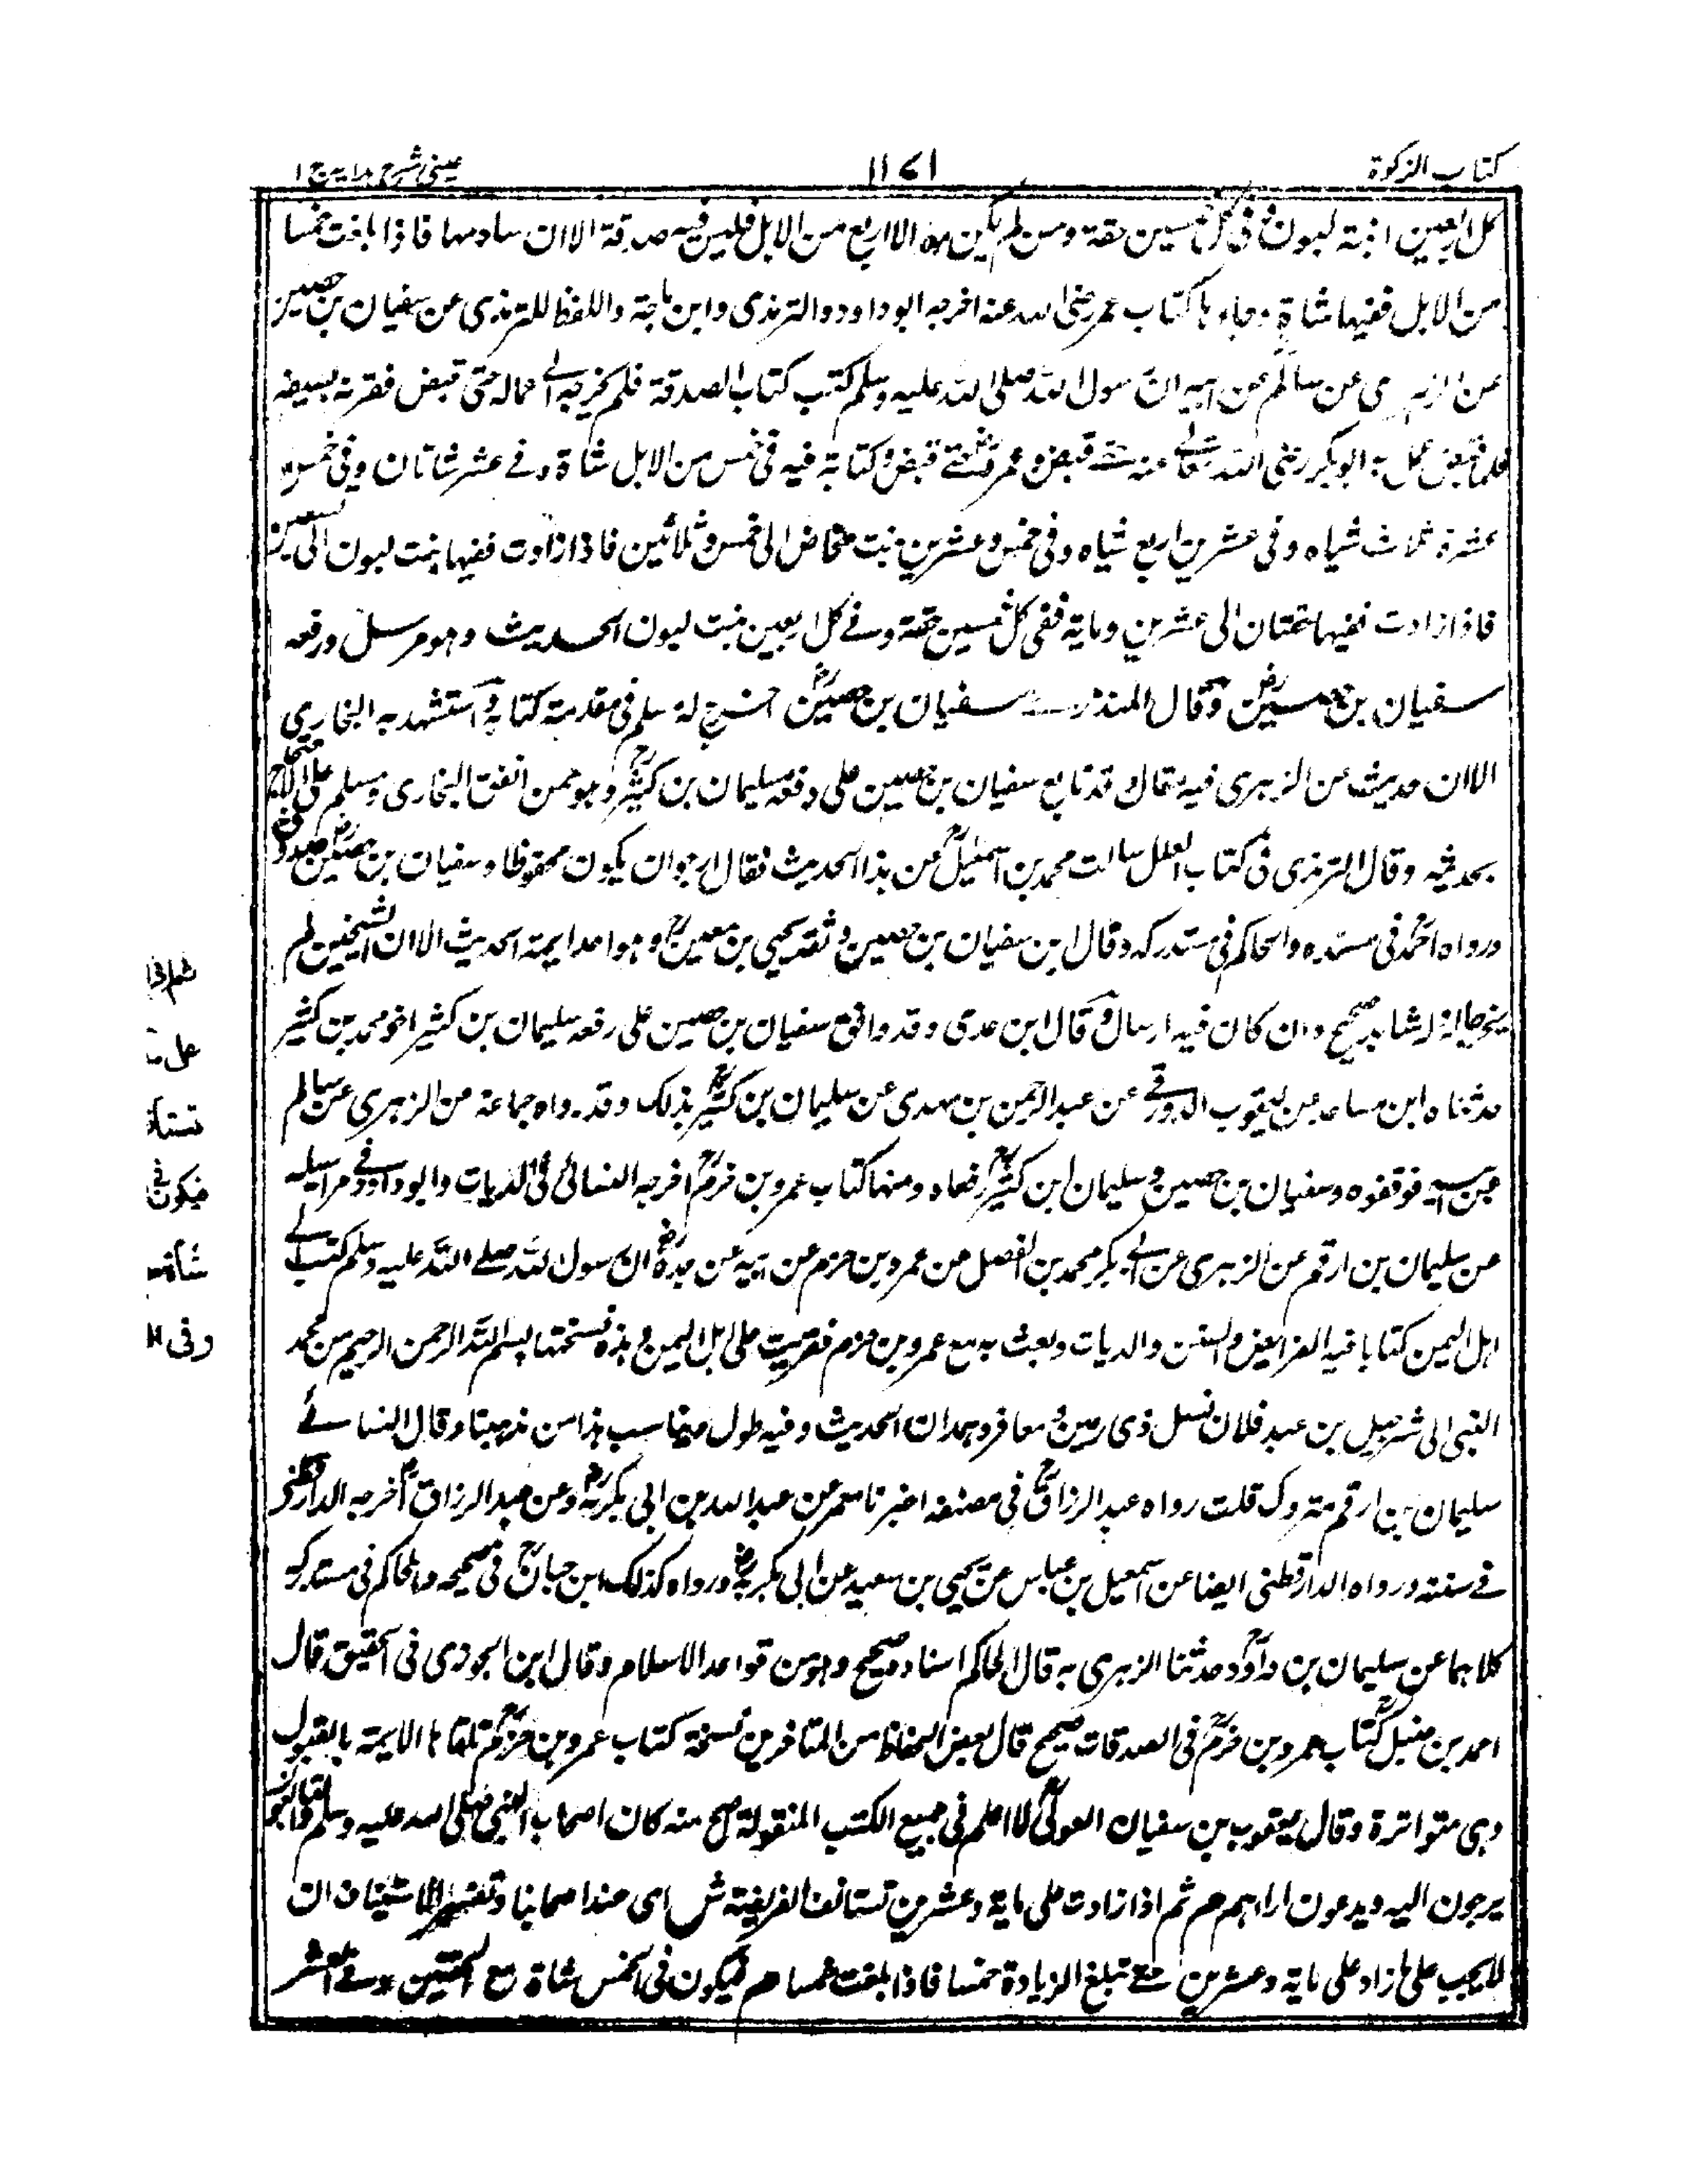 كتاب الزكوة
١١٧١
عينى شرح هدايه ج ١
كل اربعين ابنة لبون وفى كل خمسين حقة ومن لم يكن معه الا اربع من الابل فليس فيه صدقة الا ان يشاء ربها فاذا بلغت خمسا
من الابل ففيها شاة وجاء كتاب عمر رضى الله عنه اخرجه ابو داود والترمذى وابن ماجة واللفظ للترمذى عن سفيان بن حصين
عن الزهرى عن سالم عن ابيه ان رسول الله صلى الله عليه وسلم كتب كتاب الصدقة فلم يخرجه الى عماله حتى قبض فقرنه بسيفه
فلما قبض عمل به ابو بكر رضى الله تعالى عنه حتى قبض وعمر حتى قبض وكتابه فيه فى خمس من الابل شاة وفى عشر شاتان وفى خمس
عشرة ثلاث شياه وفى عشرين اربع شياه وفى خمس وعشرين بنت مخاض الى خمس وثلاثين فاذا زادت ففيها بنت لبون الى
فاذا زادت ففيها حقتان الى عشرين وماية ففى كل خمسين حقة وفى كل اربعين بنت لبون الحديث وهو مرسل ورفعه
سفيان بن حصين وقال المنذرى سفيان بن حصين اخرج له مسلم فى مقدمة كتابه واستشهد به البخارى
الا ان حديثه عن الزهرى فيه مقال وقد تابع سفيان بن حصين على رفعه سليمان بن كثير وهو ممن اتفق البخارى ومسلم على الاحتجاج
بحديثه وقال الترمذى فى كتاب العلل سالت محمد بن اسمعيل عن هذا الحديث فقال ارجو ان يكون محفوظا وسفيان بن حصين صدوق
ورواه احمد فى مسنده والحاكم فى مستدركه وقال ابن سفيان بن حصين وثقه يحيى بن معين وهو احد ايمة الحديث الا ان الشيخين لم
يخرجا له وله شاهد صحيح وان كان فيه ارسال وقال ابن عدى وقد وافق سفيان بن حصين على رفعه سليمان بن كثير اخو محمد بن كثير
حدثناه ابن صاعد عن يعقوب الدورقى عن عبد الرحمن بن مهدى عن سليمان بن كثير بذلك وقد رواه جماعة عن الزهرى عن سالم
عن ابيه فوقفوه وسفيان بن حصين وسليمان ابن كثير رفعاه ومنها كتاب عمرو بن حزم اخرجه النسائى فى الديات وابو داود فى مراسيله
عن سليمان بن ارقم عن الزهرى عن ابى بكر محمد بن الفصل عن عمرو بن حزم عن ابيه عن جده ان رسول الله صلى الله عليه وسلم كتب الى
اهل اليمن كتابا فيه الفرايض والسنن والديات وبعث به مع عمرو بن حزم فقرئت على اهل اليمن وهذه نسختها بسم الله الرحمن الرحيم من محمد
النبى الى شرحبيل بن عبد فلان نسل ذى رعين ومعافر وهمدان الحديث وفيه طول مناسب هذا من مذهبنا وقال النسائى
سليمان بن ارقم متروك قلت رواه عبد الرزاق فى مصنفه اخبرنا معمر عن عبد الله بن ابى بكر به وعن عبد الرزاق اخرجه الدارقطنى
فى سننه ورواه الدارقطنى ايضا عن اسمعيل بن عباس عن يحيى بن سعيد عن ابى بكر به ورواه كذلك ابن حبان فى صحيحه والحاكم فى مستدركه
كلاهما عن سليمان بن داود حدثنا الزهرى به قال الحاكم اسناده صحيح وهو من قواعد الاسلام وقال ابن الجوزى فى التحقيق قال
احمد بن حنبل كتاب عمرو بن حزم فى الصدقات صحيح قال بعض الحفاظ من المتاخرين نسخة كتاب عمرو بن حزم تلقاها الايمة بالقبول
وهى متواترة وقال يعقوب بن سفيان الفولى لا اعلم فى جميع الكتب المنقولة اصح منه كان اصحاب النبى صلى الله عليه وسلم والتابعون
يرجعون اليه ويدعون اراهم م ثم اذا زادت على ماية وعشرين تستانف الفريضة ش اى عند اصحابنا وتفسير الاستيناف ان
لا يجب على ما زاد على ماية وعشرين حتى تبلغ الزيادة خمسا فاذا بلغت خمسا م فيكون فى الخمس شاة مع الحقتين وفى العشر
على
فيكون فى
وفى